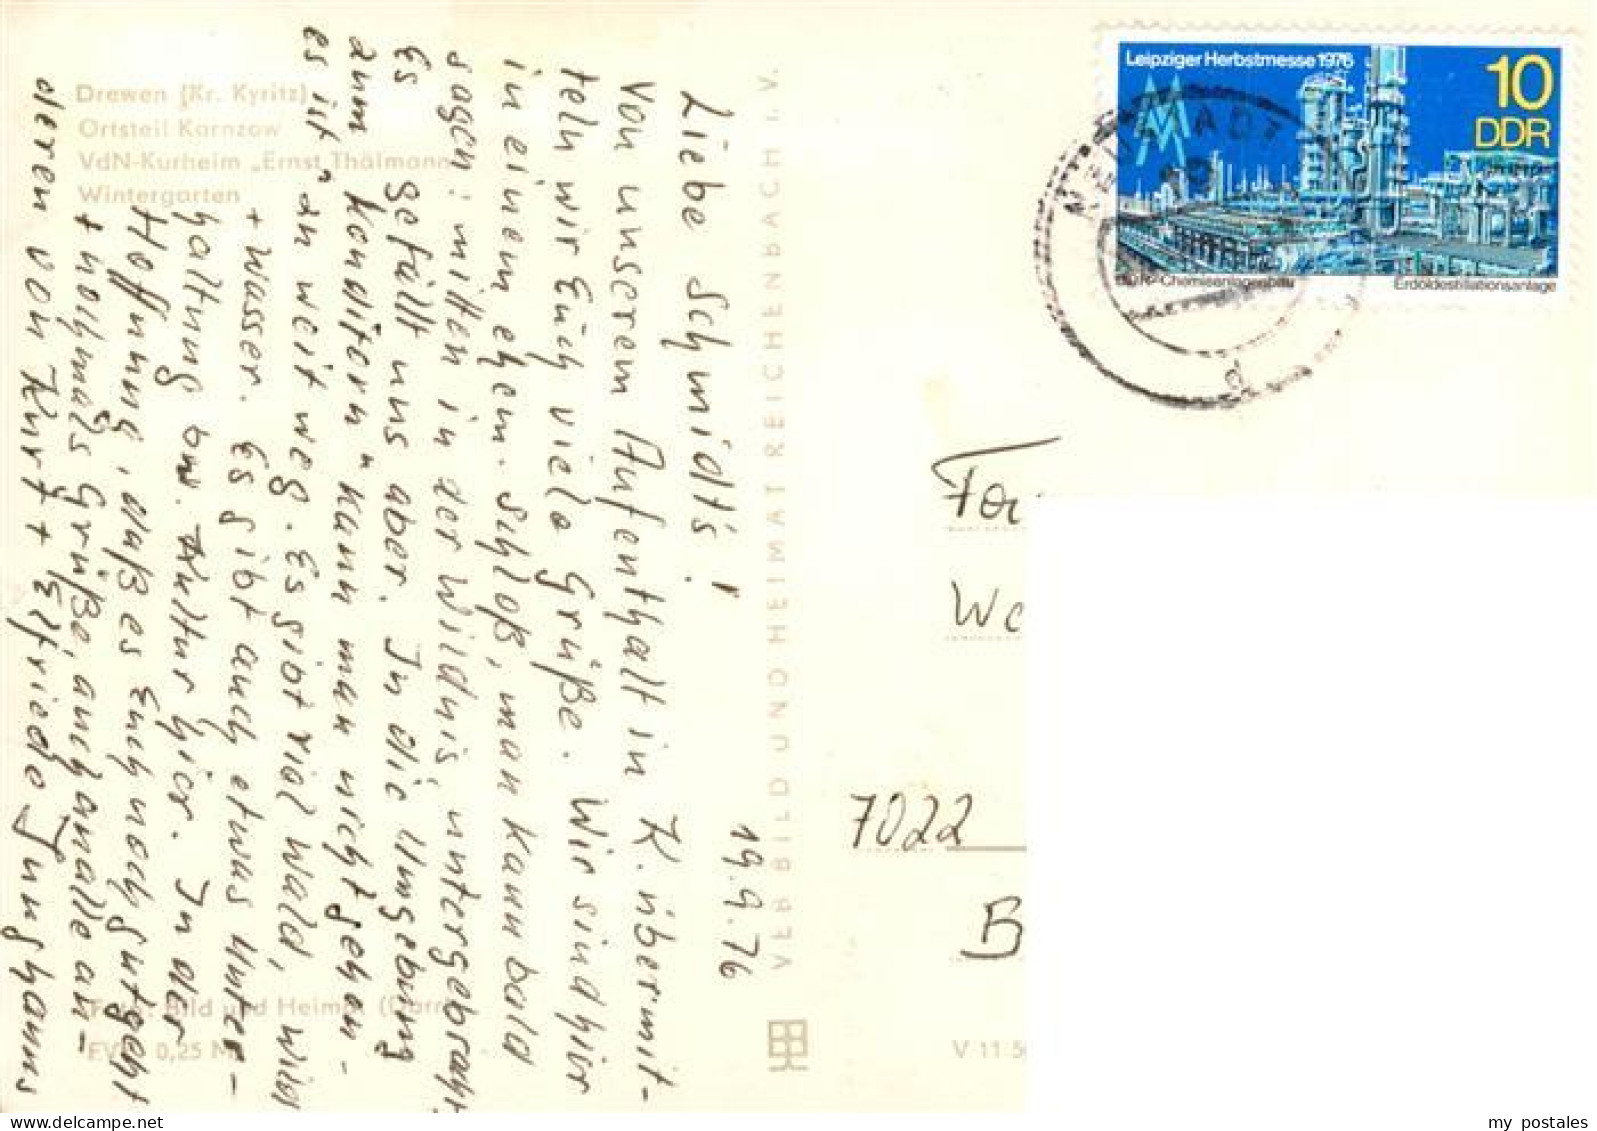 Drewen (Kr. Kyritz)
Ortsteil Karnzow
VdN-Kurheim „Ernst Thälmann"
Wintergarten
19.9.76
Liebe Schmidt's!
Von unserem Aufenthalt in K. übermit-
teln wir Euch viele Grüße. Wir sind hier
in einem ehem. Schloß, man kann bald
sagen: mitten in der Wildnis, untergebracht.
Es gefällt uns aber. In die Umgebung
zum "Konditern" kann man nicht gehen -
es ist zu weit weg. Es gibt viel Wald, Wild
+ Wasser. Es gibt auch etwas Unter-
haltung bzw. Kultur hier. In der
Hoffnung, daß es Euch noch gut geht
+ nochmals Grüße, auch an alle an-
deren von Kurt + Elfriede Junghanns
Foto: Bild und Heimat (Darr)
EVP 0,25 M
VEB BILD UND HEIMAT REICHENBACH I. V.
Leipziger Herbstmesse 1976
10
DDR
MM
DDR-Chemieanlagenbau
Erdöldestillationsanlage
7022
B
V 11 50
my postales